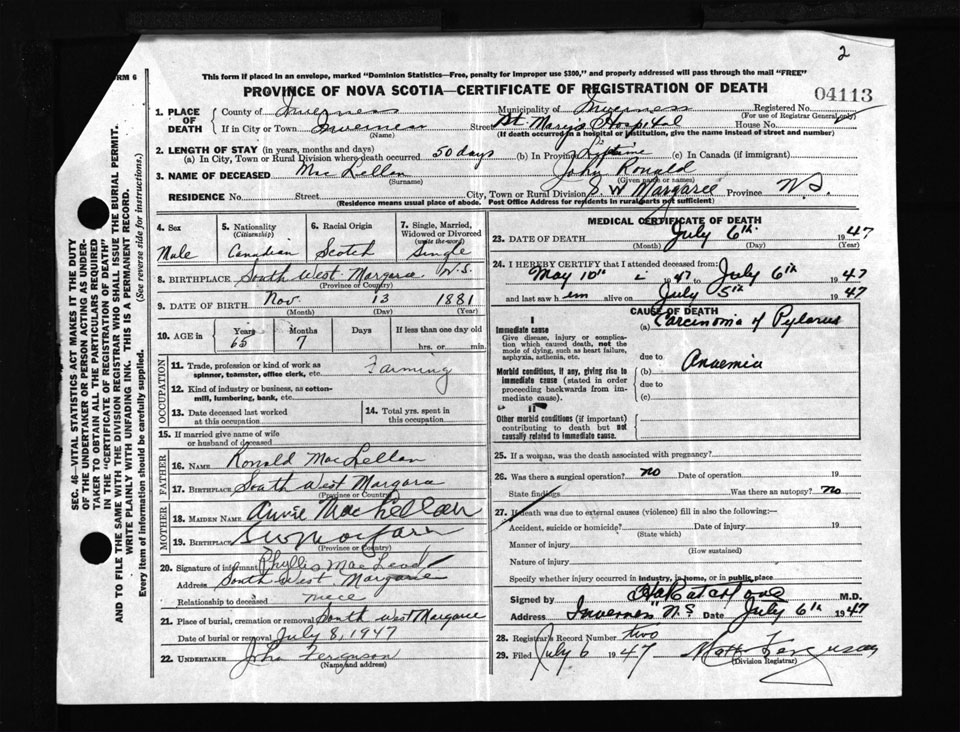 2
FORM 6
This form if placed in an envelope, marked "Dominion Statistics—Free, penalty for improper use $300," and properly addressed will pass through the mail "FREE"
PROVINCE OF NOVA SCOTIA—CERTIFICATE OF REGISTRATION OF DEATH
04113
1. PLACE OF DEATH
County of Inverness Municipality of Inverness Registered No.
(For use of Registrar General only)
If in City or Town Inverness Street St. Mary's Hospital House No.
(Name) (If death occurred in a hospital or institution, give the name instead of street and number)
2. LENGTH OF STAY (in years, months and days)
(a) In City, Town or Rural Division where death occurred 50 days (b) In Province Lifetime (c) In Canada (if immigrant)
3. NAME OF DECEASED MacLellan John Ronald
(Surname) (Given name or names)
RESIDENCE No. Street City, Town or Rural Division S. W Margaree Province N.S.
(Residence means usual place of abode. Post Office Address for residents in rural parts not sufficient)
SEC. 46—VITAL STATISTICS ACT MAKES IT THE DUTY
OF THE UNDERTAKER OR PERSON ACTING AS UNDER-
TAKER TO OBTAIN ALL THE PARTICULARS REQUIRED
IN THE "CERTIFICATE OF REGISTRATION OF DEATH"
AND TO FILE THE SAME WITH THE DIVISION REGISTRAR WHO SHALL ISSUE THE BURIAL PERMIT.
WRITE PLAINLY WITH UNFADING INK. THIS IS A PERMANENT RECORD.
Every item of information should be carefully supplied. (See reverse side for instructions.)
4. Sex
Male
5. Nationality
(Citizenship)
Canadian
6. Racial Origin
Scotch
7. Single, Married,
Widowed or Divorced
(write the word)
Single
8. BIRTHPLACE South West Margaree N.S.
(Province or Country)
9. DATE OF BIRTH Nov 13 1881
(Month) (Day) (Year)
10. AGE in
Years Months Days If less than one day old
65 7 hrs. or min.
OCCUPATION
11. Trade, profession or kind of work as
spinner, teamster, office clerk, etc. Farming
12. Kind of industry or business, as cotton-
mill, lumbering, bank, etc.
13. Date deceased last worked
at this occupation
14. Total yrs. spent in
this occupation
15. If married give name of wife
or husband of deceased
FATHER
16. NAME Ronald MacLellan
17. Birthplace South West Margaree
(Province or Country)
MOTHER
18. MAIDEN NAME Annie MacLellan
19. BIRTHPLACE S W Margaree
(Province or Country)
20. Signature of informant Phyllis MacLeod
Address South West Margarie
Relationship to deceased niece
21. Place of burial, cremation or removal South West Margaree
Date of burial or removal July 8, 1947
22. UNDERTAKER John Ferguson
(Name and address)
MEDICAL CERTIFICATE OF DEATH
23. DATE OF DEATH July 6th 1947
(Month) (Day) (Year)
24. I HEREBY CERTIFY that I attended deceased from:
May 10th 1947 July 6th 1947
and last saw h im alive on July 5th 1947
CAUSE OF DEATH
I
Immediate cause
Give disease, injury or complica-
tion which caused death, not the
mode of dying, such as heart failure,
asphyxia, asthenia, etc.
(a) Carcinoma of Pylorus
due to
Morbid conditions, if any, giving rise to
immediate cause (stated in order
proceeding backwards from im-
mediate cause).
(b) Anaemia
due to
(c)
II
Other morbid conditions (if important)
contributing to death but not
causally related to immediate cause.
25. If a woman, was the death associated with pregnancy?
26. Was there a surgical operation? no Date of operation 19
State findings Was there an autopsy? no
27. If death was due to external causes (violence) fill in also the following:—
Accident, suicide or homicide? Date of injury 19
(State which)
Manner of injury
(How sustained)
Nature of injury
Specify whether injury occurred in industry, in home, or in public place
Signed by M.D.
Address Inverness N.S. Date July 6th 1947
28. Registrar's Record Number two
29. Filed July 6 1947 Ferguson
(Division Registrar)